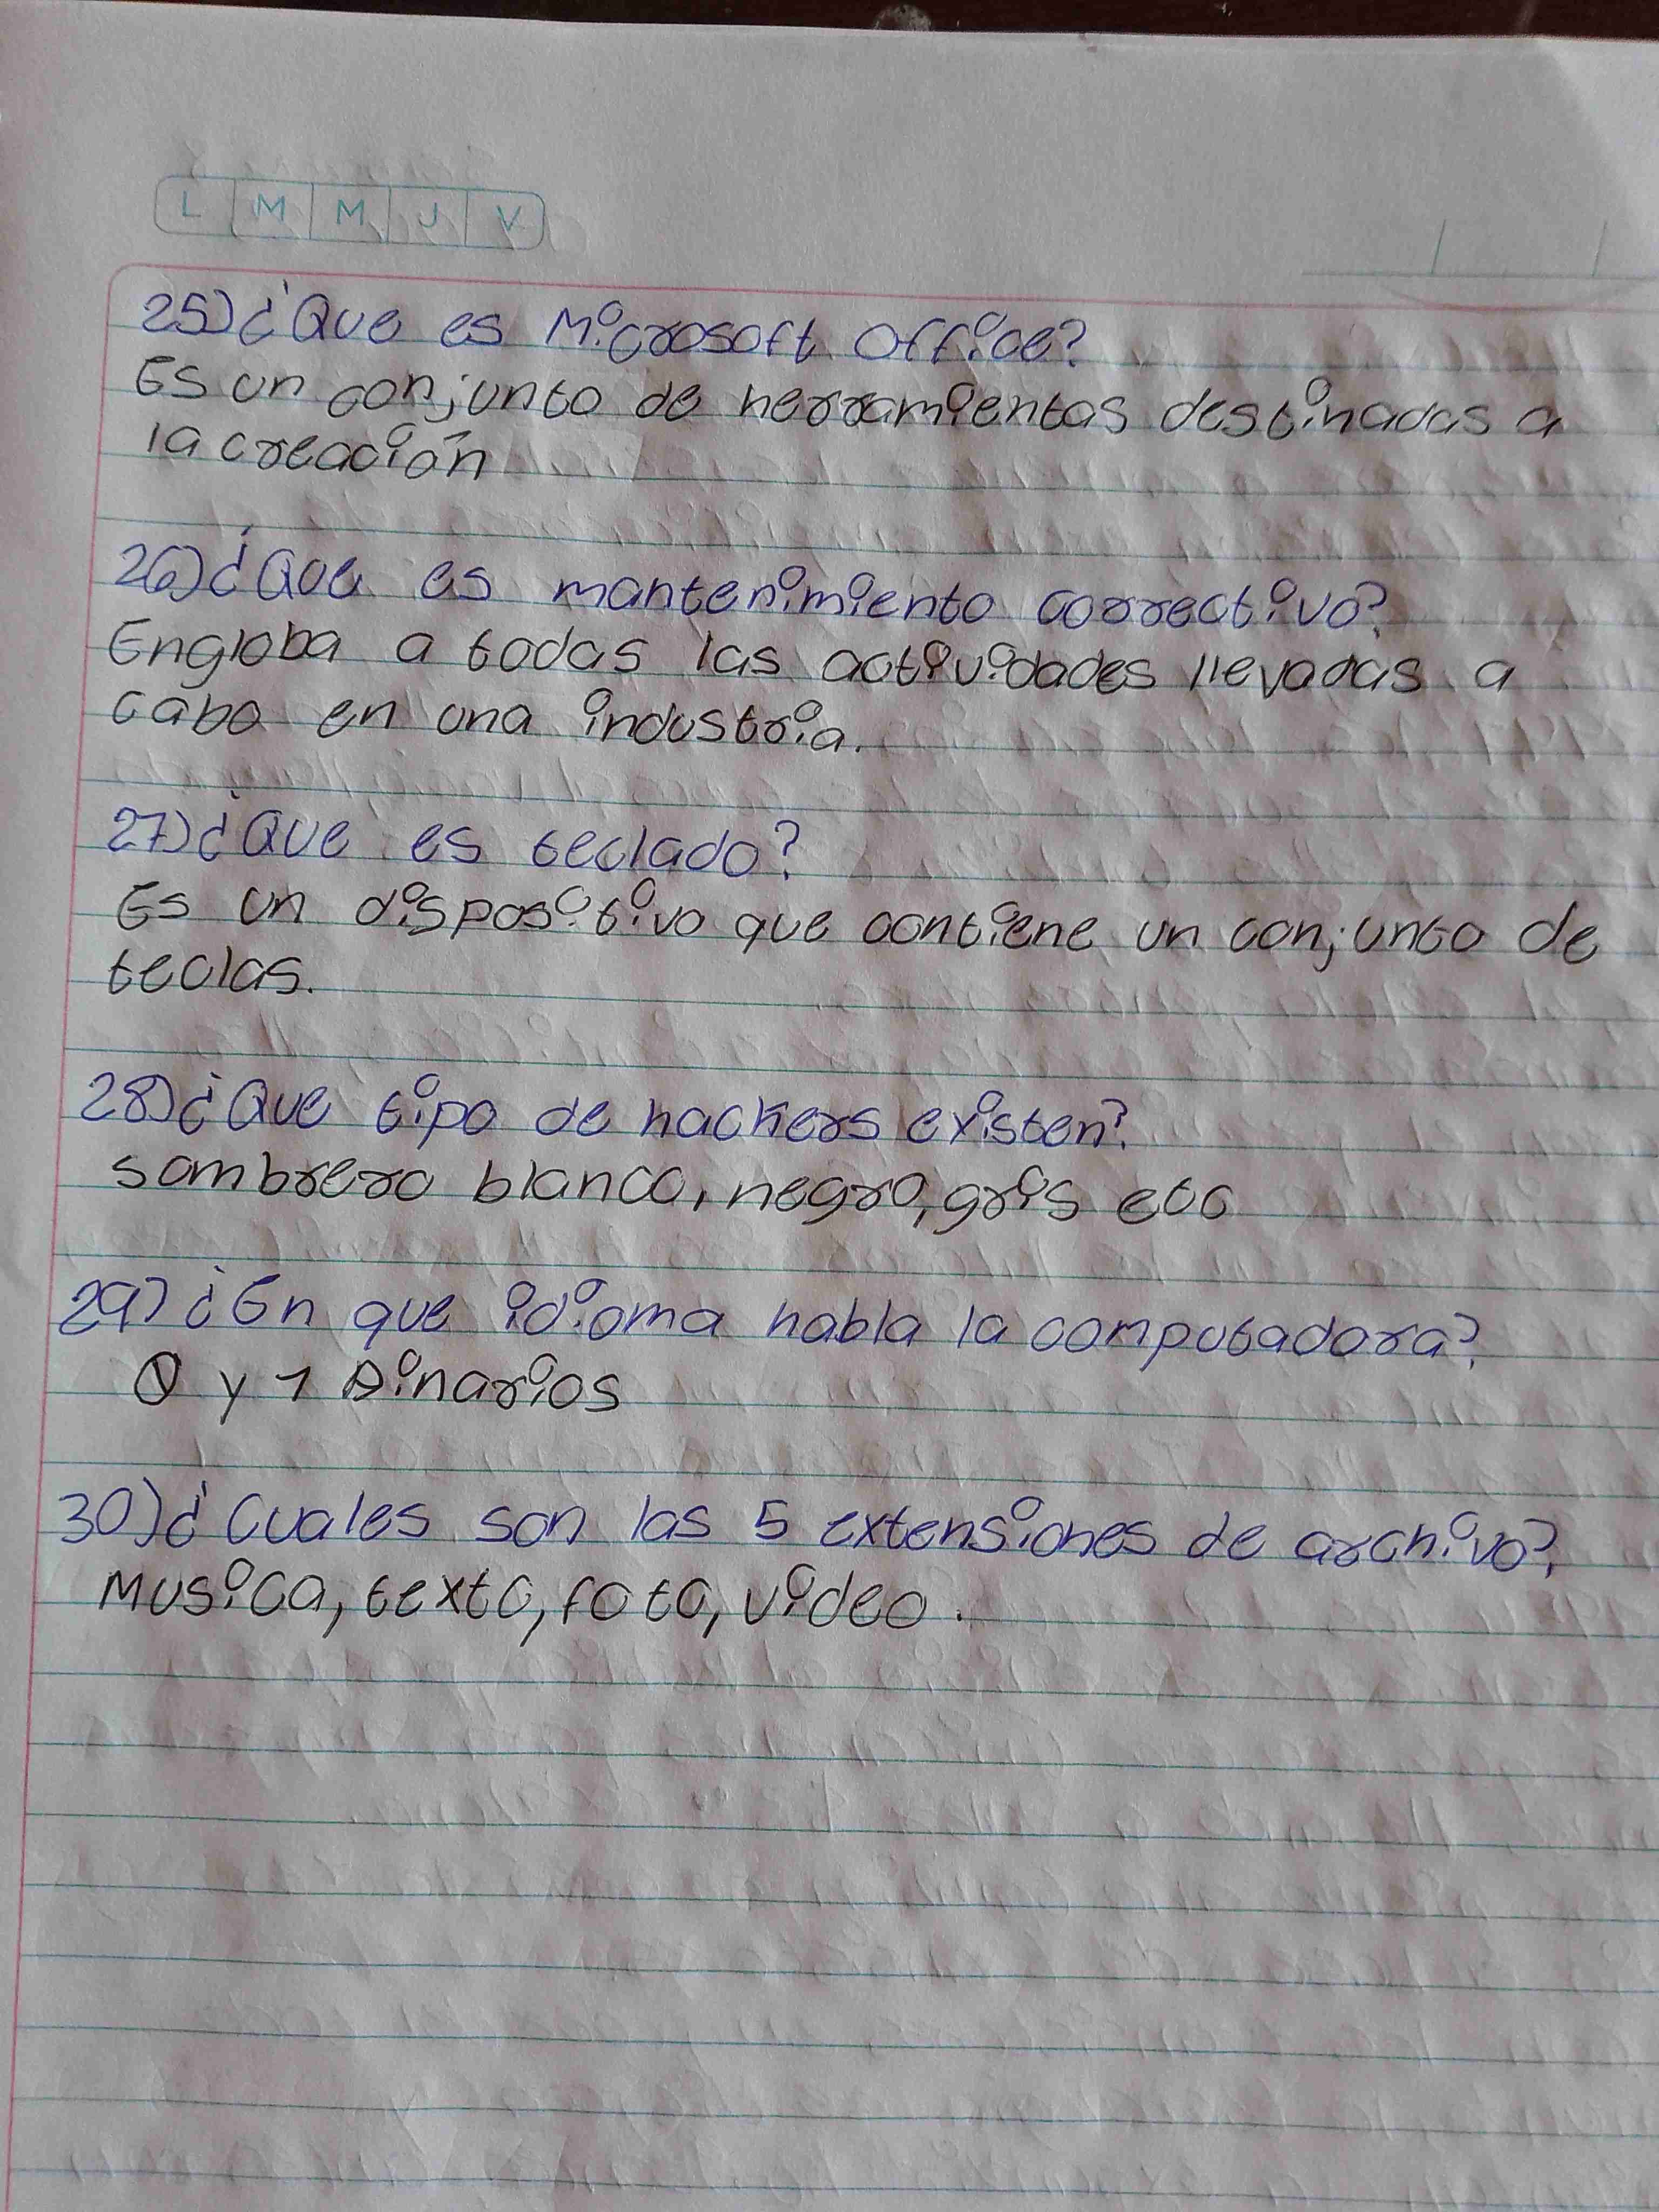 L M M J V
25) ¿Que es Microsoft Office?
Es un conjunto de herramientas destinadas a
la creación
26) ¿Que es mantenimiento correctivo?
Engloba a todas las actividades llevadas a
cabo en una industria.
27) ¿Que es teclado?
Es un dispositivo que contiene un conjunto de
teclas.
28) ¿Que tipo de hackers existen?
sombrero blanco, negro, gris etc
29) ¿En que idioma habla la computadora?
0 y 1 Binarios
30) ¿Cuales son las 5 extensiones de archivo?
Musica, texto, foto, video.